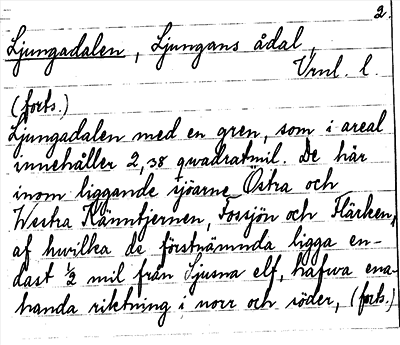 2.
Ljungadalen, Ljungans ådal,
Vrnl. l.
(forts.)
Ljungadalen med en gren, som i areal
innehåller 2,38 qwadratmil. De här
inom liggande sjöarne Östra och
Westra Känntjernen, Fossjön och Flärken,
af hwilka de förstnämnda ligga en-
dast ½ mil från Ljusna elf, hafwa ena-
handa riktning i norr och söder, (forts.)